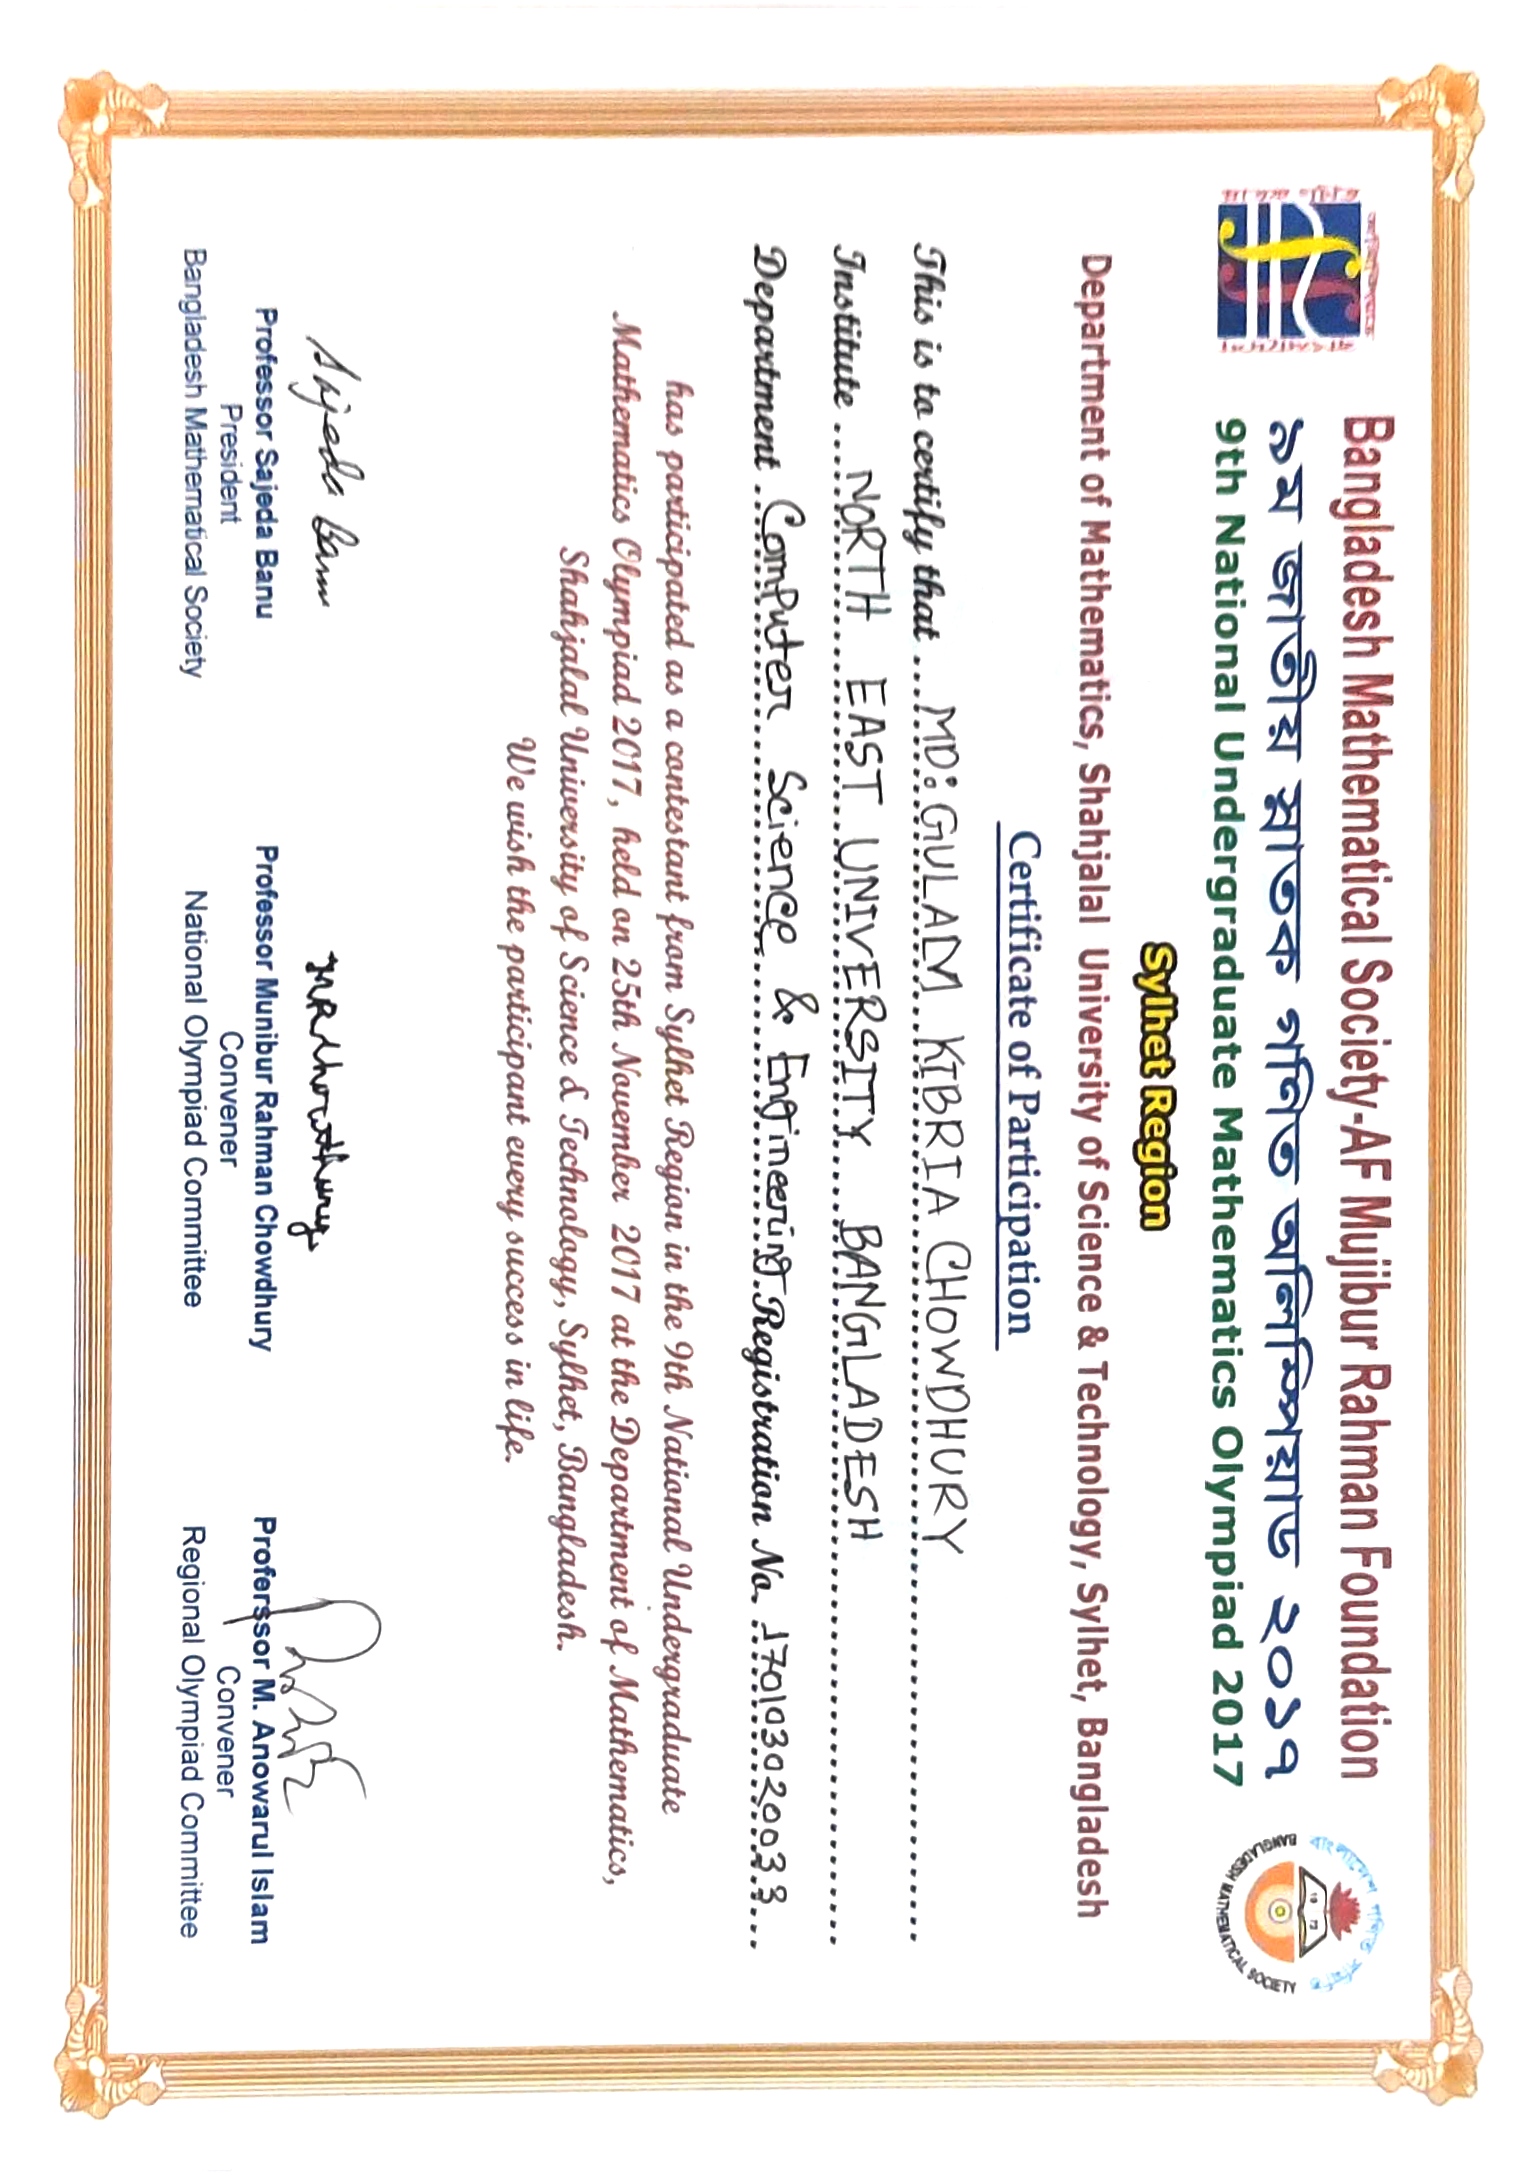 Bangladesh Mathematical Society-AF Mujibur Rahman Foundation
৯ম জাতীয় স্নাতক গণিত অলিম্পিয়াড ২০১৭
9th National Undergraduate Mathematics Olympiad 2017
বাংলাদেশ গণিত সমিতি
19 72
BANGLADESH MATHEMATICAL SOCIETY
Sylhet Region
Department of Mathematics, Shahjalal University of Science & Technology, Sylhet, Bangladesh
Certificate of Participation
This is to certify that MD: GULAM KIBRIA CHOWDHURY
Institute NORTH EAST UNIVERSITY BANGLADESH
Department Computer Science & Engineering Registration No. 170103020033
has participated as a contestant from Sylhet Region in the 9th National Undergraduate
Mathematics Olympiad 2017, held on 25th November 2017 at the Department of Mathematics,
Shahjalal University of Science & Technology, Sylhet, Bangladesh.
We wish the participant every success in life.
Sajeda Banu
MRChowdhury
Professor Sajeda Banu
President
Bangladesh Mathematical Society
Professor Munibur Rahman Chowdhury
Convener
National Olympiad Committee
Proferssor M. Anowarul Islam
Convener
Regional Olympiad Committee